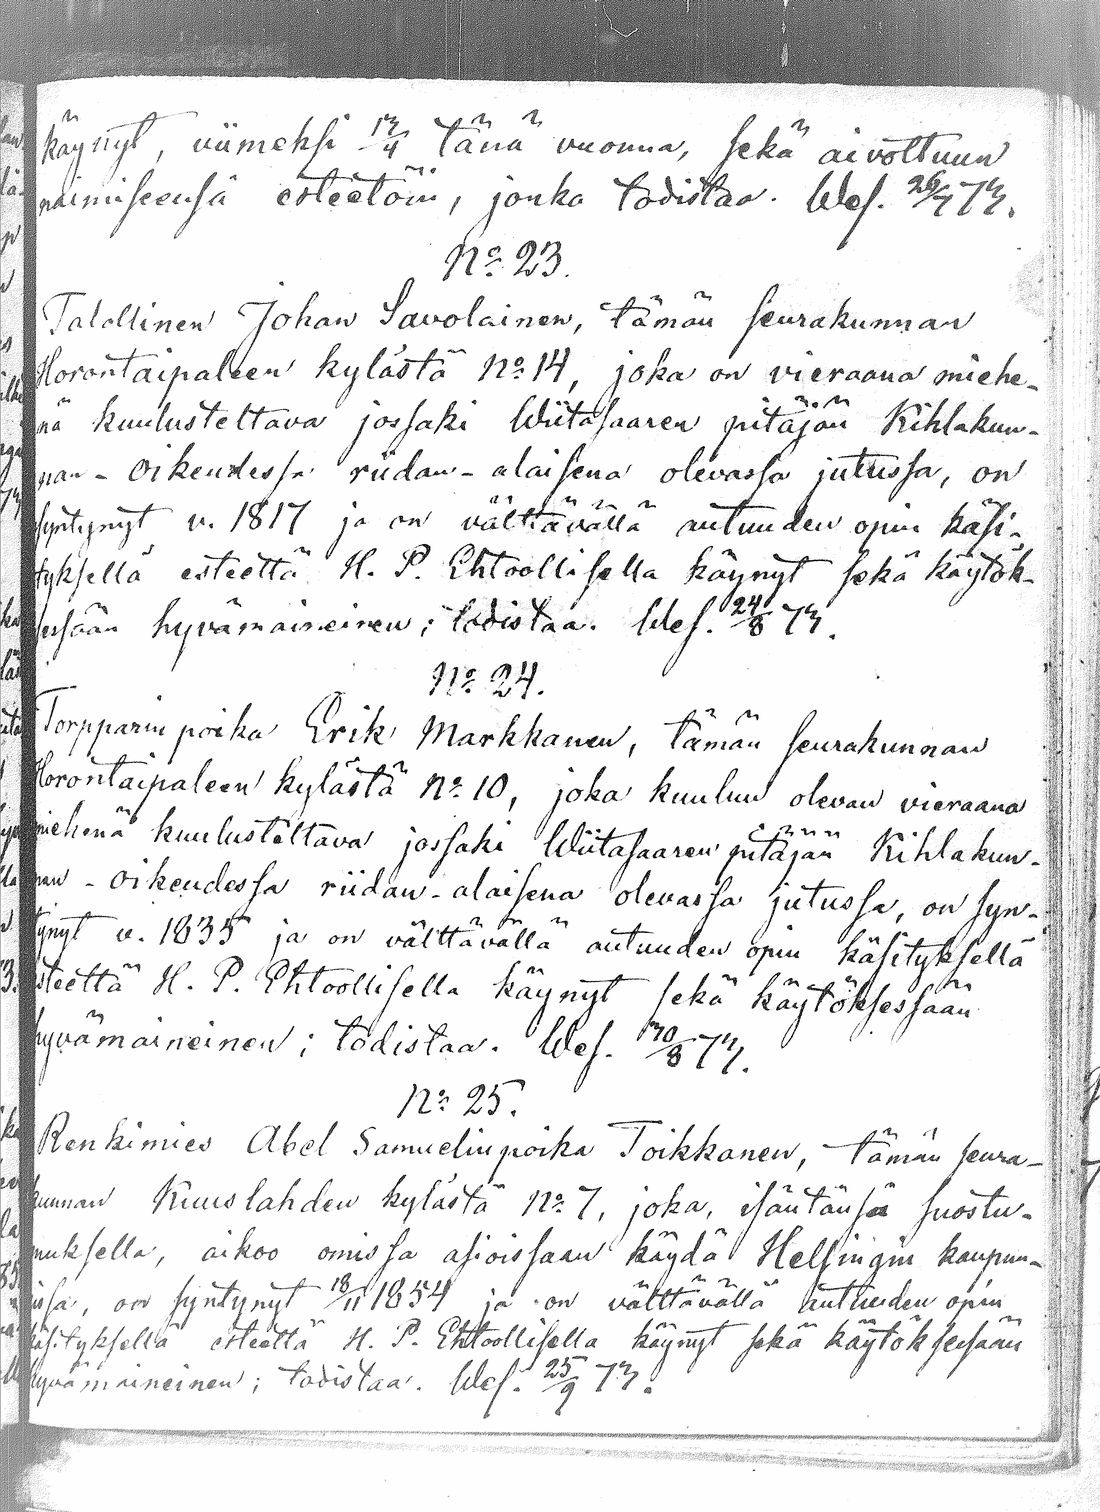 käynyt, viimeksi 13/4 tänä vuonna, sekä aivottuun
naimiseensä esteetöin, jonka todistaa. Wes. 26/7 73.
No 23.
Talollinen Johan Savolainen, tämän seurakunnan
Horontaipaleen kylästä No 14, joka on vieraana miehe-
nä kuulusteltava jossaki Wiitasaaren pitäjän Kihlakun-
nan-oikeudessa riidan-alaisena olevassa jutussa, on
syntynyt v. 1817 ja on välttävällä autuuden opin käsi-
tyksellä esteettä H. P. Ehtoollisella käynyt sekä käytök-
sessään hyvämaineinen; todistaa. Wes. 24/8 73.
No 24.
Torpparin poika Erik Markkanen, tämän seurakunnan
Horontaipaleen kylästä No 10, joka kuuluu olevan vieraana
miehenä kuulusteltava jossaki Wiitasaaren pitäjän Kihlakun-
nan-oikeudessa riidan-alaisena olevassa jutussa, on syn-
tynyt v. 1835 ja on välttävällä autuuden opin käsityksellä
esteettä H. P. Ehtoollisella käynyt sekä käytöksessään
hyvämaineinen; todistaa. Wes. 30/8 73.
No 25.
Renkimies Abel Samuelinpoika Toikkanen, tämän seura-
kunnan Kuuslahden kylästä No 7, joka, isäntänsä suostu-
muksella, aikoo omissa asioissaan käydä Helsingin kaupun-
issa, on syntynyt 18/11 1854 ja on välttävällä autuuden opin
käsityksellä esteettä H. P. Ehtoollisella käynyt sekä käytöksessään
hyvämaineinen; todistaa. Wes. 25/9 73.